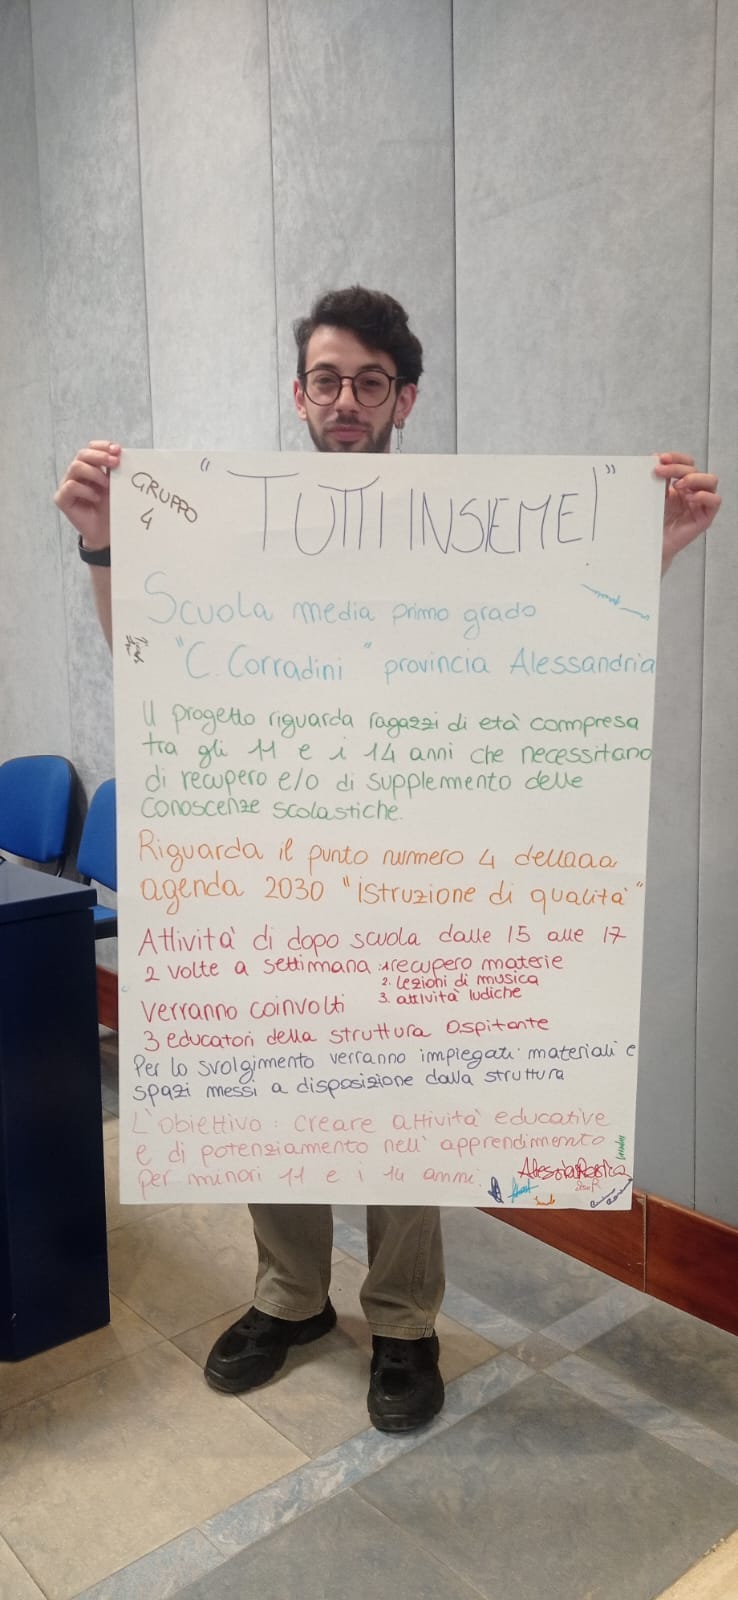 GRUPPO
4
"TUTTI INSIEME!"
Scuola media primo grado
"C. Corradini" provincia Alessandria
Il progetto riguarda ragazzi di età compresa
tra gli 11 e i 14 anni che necessitano
di recupero e/o di supplemento delle
conoscenze scolastiche.
Riguarda il punto numero 4 dellaaa
agenda 2030 "istruzione di qualità"
Attività di dopo scuola dalle 15 alle 17
2 volte a settimana: 1 recupero materie
2. lezioni di musica
3. attività ludiche
Verranno coinvolti
3 educatori della struttura ospitante
Per lo svolgimento verranno impiegati materiali e
spazi messi a disposizione dalla struttura
L'obiettivo: creare attività educative
e di potenziamento nell'apprendimento
per minori 11 e i 14 anni.